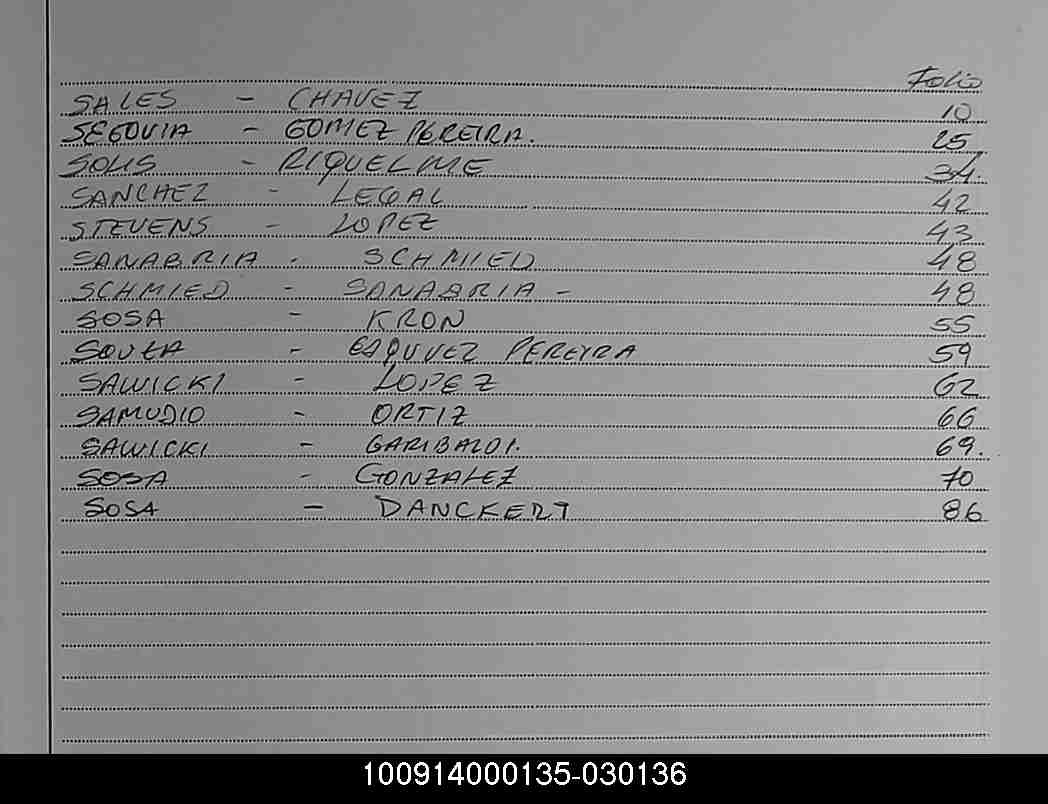 Folio
SALES - CHAVEZ 10
SEGOVIA - GOMEZ PEREIRA. 25
SOLIS - RIQUELME 34.
SANCHEZ - LEGAL 42
STEVENS - LOPEZ 43
SANABRIA - SCHMIED 48
SCHMIED - SANABRIA - 48
SOSA - KRON 55
SOUZA - PEREYRA 59
SAWICKI - LOPEZ 62
SAMUDIO - ORTIZ 66
SAWICKI - GARIBALDI. 69.
SOSA - GONZALEZ 70
SOSA - DANCKERT 86
100914000135-030136